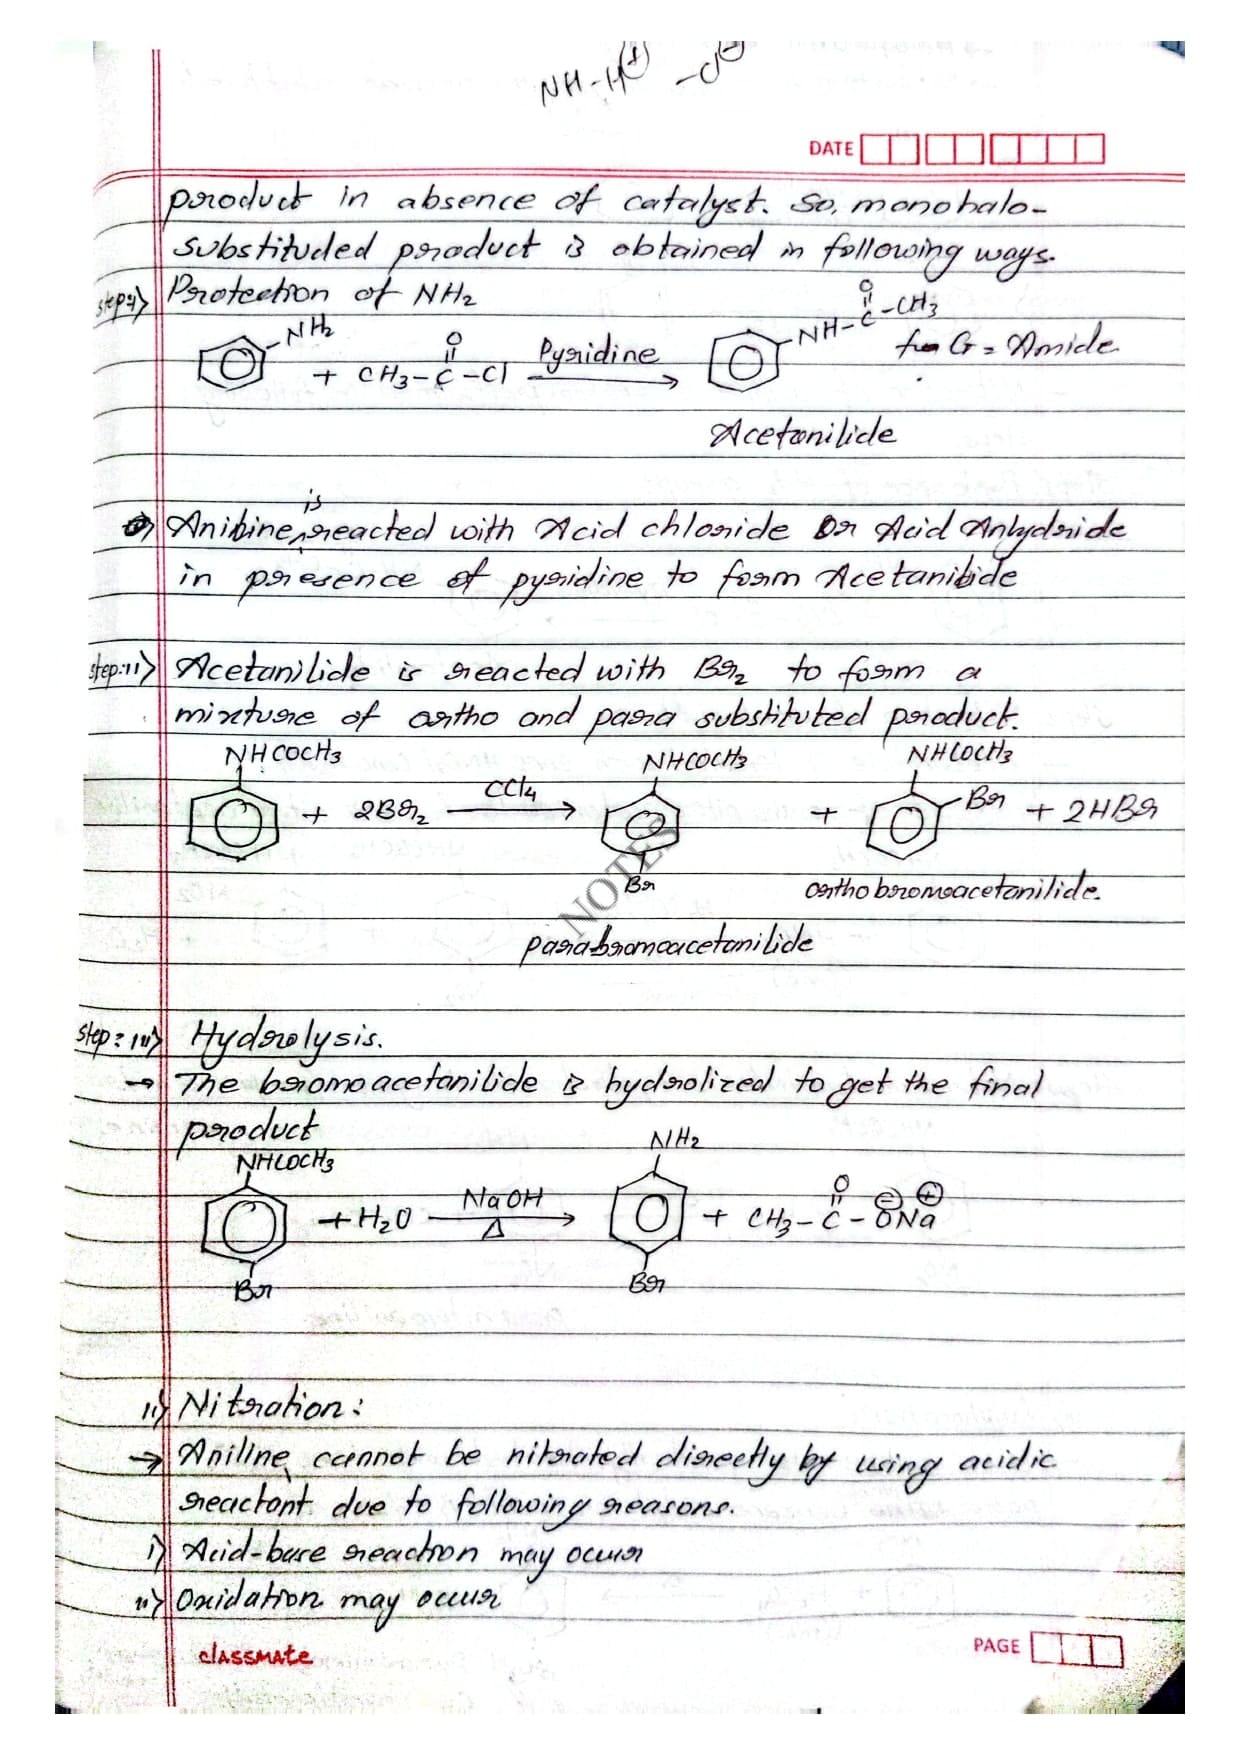 NH-H⊕ -Cl⊖
DATE
product in absence of catalyst. So, monohalo-
substituded product is obtained in following ways.
step:i> Protection of NH2
NH2 + CH3-C(=O)-Cl Pyridine NH-C(=O)-CH3 G = Amide
Acetanilide
is
Aniline, reacted with Acid chloride Or Acid Anhydride
in presence of pyridine to form Acetanilide
step:ii> Acetanilide is reacted with Br2 to form a
mixture of ortho and para substituted product.
NHCOCH3 + 2Br2 CCl4 NHCOCH3 Br + NHCOCH3 Br + 2HBr
orthobromoacetanilide.
NOTES
parabromoacetanilide
step: iii> Hydrolysis.
→ The bromoacetanilide is hydrolized to get the final
product
NHCOCH3 Br + H2O NaOH Δ NH2 Br + CH3-C(=O)-O⊖Na⊕
ii> Nitration:
→ Aniline cannot be nitrated directly by using acidic
reactant due to following reasons.
i> Acid-base reaction may occur
ii> Oxidation may occur
classmate PAGE